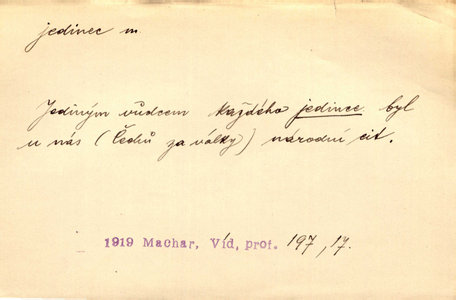 jedinec m
Jediným vůdcem každého jedince byl
u nás (Čechů za války) národní cit.
1919 Machar, Víd, prof. 197, 17.